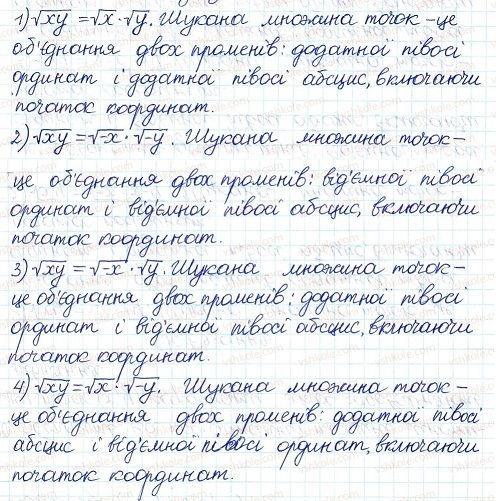 1) √xy = √x · √y. Шукана множина точок – це
об'єднання двох променів: додатної півосі
ординат і додатної півосі абсцис, включаючи
початок координат.
2) √xy = √-x · √-y. Шукана множина точок –
це об'єднання двох променів: від'ємної півосі
ординат і від'ємної півосі абсцис, включаючи
початок координат.
3) √xy = √-x · √y. Шукана множина точок –
це об'єднання двох променів: додатної півосі
ординат і від'ємної півосі абсцис, включаючи
початок координат.
4) √xy = √x · √-y. Шукана множина точок –
це об'єднання двох променів: додатної півосі
абсцис і від'ємної півосі ординат, включаючи
початок координат.